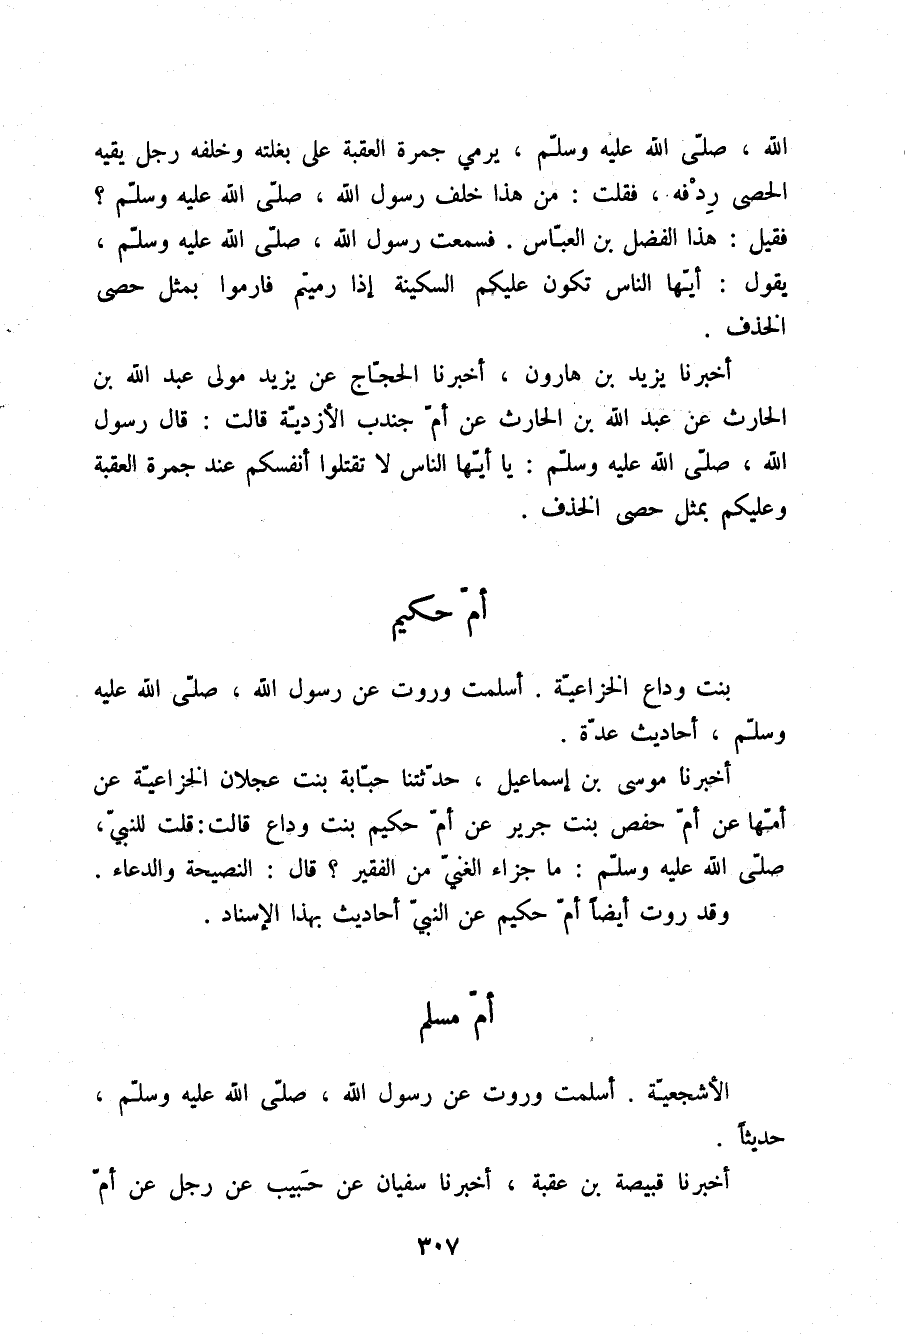 الله ، صلّى الله عليه وسلّم ، يرمي جمرة العقبة على بغلته وخلفه رجل يقيه
الحصى رِدْفه ، فقلت : من هذا خلف رسول الله ، صلّى الله عليه وسلّم ؟
فقيل : هذا الفضل بن العبّاس . فسمعت رسول الله ، صلّى الله عليه وسلّم ،
يقول : أيّها الناس تكون عليكم السكينة إذا رميتم فارموا بمثل حصى
الخذف .
أخبرنا يزيد بن هارون ، أخبرنا الحجّاج عن يزيد مولى عبد الله بن
الحارث عن عبد الله بن الحارث عن أمّ جندب الأزديّة قالت : قال رسول
الله ، صلّى الله عليه وسلّم : يا أيّها الناس لا تقتلوا أنفسكم عند جمرة العقبة
وعليكم بمثل حصى الخذف .
أمّ حكيم
بنت وداع الخزاعيّة . أسلمت وروت عن رسول الله ، صلّى الله عليه
وسلّم ، أحاديث عدّة .
أخبرنا موسى بن إسماعيل ، حدّثتنا حبّابة بنت عجلان الخزاعيّة عن
أمّها عن أمّ حفص بنت جرير عن أمّ حكيم بنت وداع قالت : قلت للنبيّ ،
صلّى الله عليه وسلّم : ما جزاء الغنيّ من الفقير ؟ قال : النصيحة والدعاء .
وقد روت أيضاً أمّ حكيم عن النبيّ أحاديث بهذا الإسناد .
أمّ مسلم
الأشجعيّة . أسلمت وروت عن رسول الله ، صلّى الله عليه وسلّم ،
حديثاً .
أخبرنا قبيصة بن عقبة ، أخبرنا سفيان عن حَبيب عن رجل عن أمّ
٣٠٧